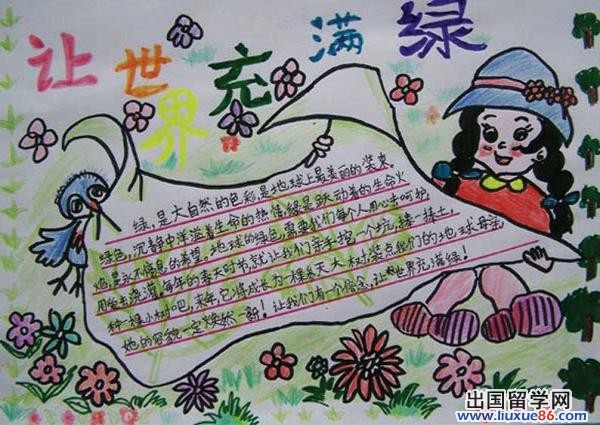 让世界充满绿
绿,是大自然的色彩,是地球上最美丽的装束。
绿色,沉静中洋溢着生命的热情,绿是跃动着的生命火
焰,是永不熄息的希望。地球的绿色,需要我们每个人用心来呵护
用金去浇灌,每年的春天时节,就让我们亲手挖一个坑,捧一捧土,
种一棵小树吧,来年,它将成长为一棵参天大木对,装点我们的地球母亲
她的容貌一定焕然一新!让我们有一个信念,让世界充满绿!
出国留学网
www.liuxue86.com